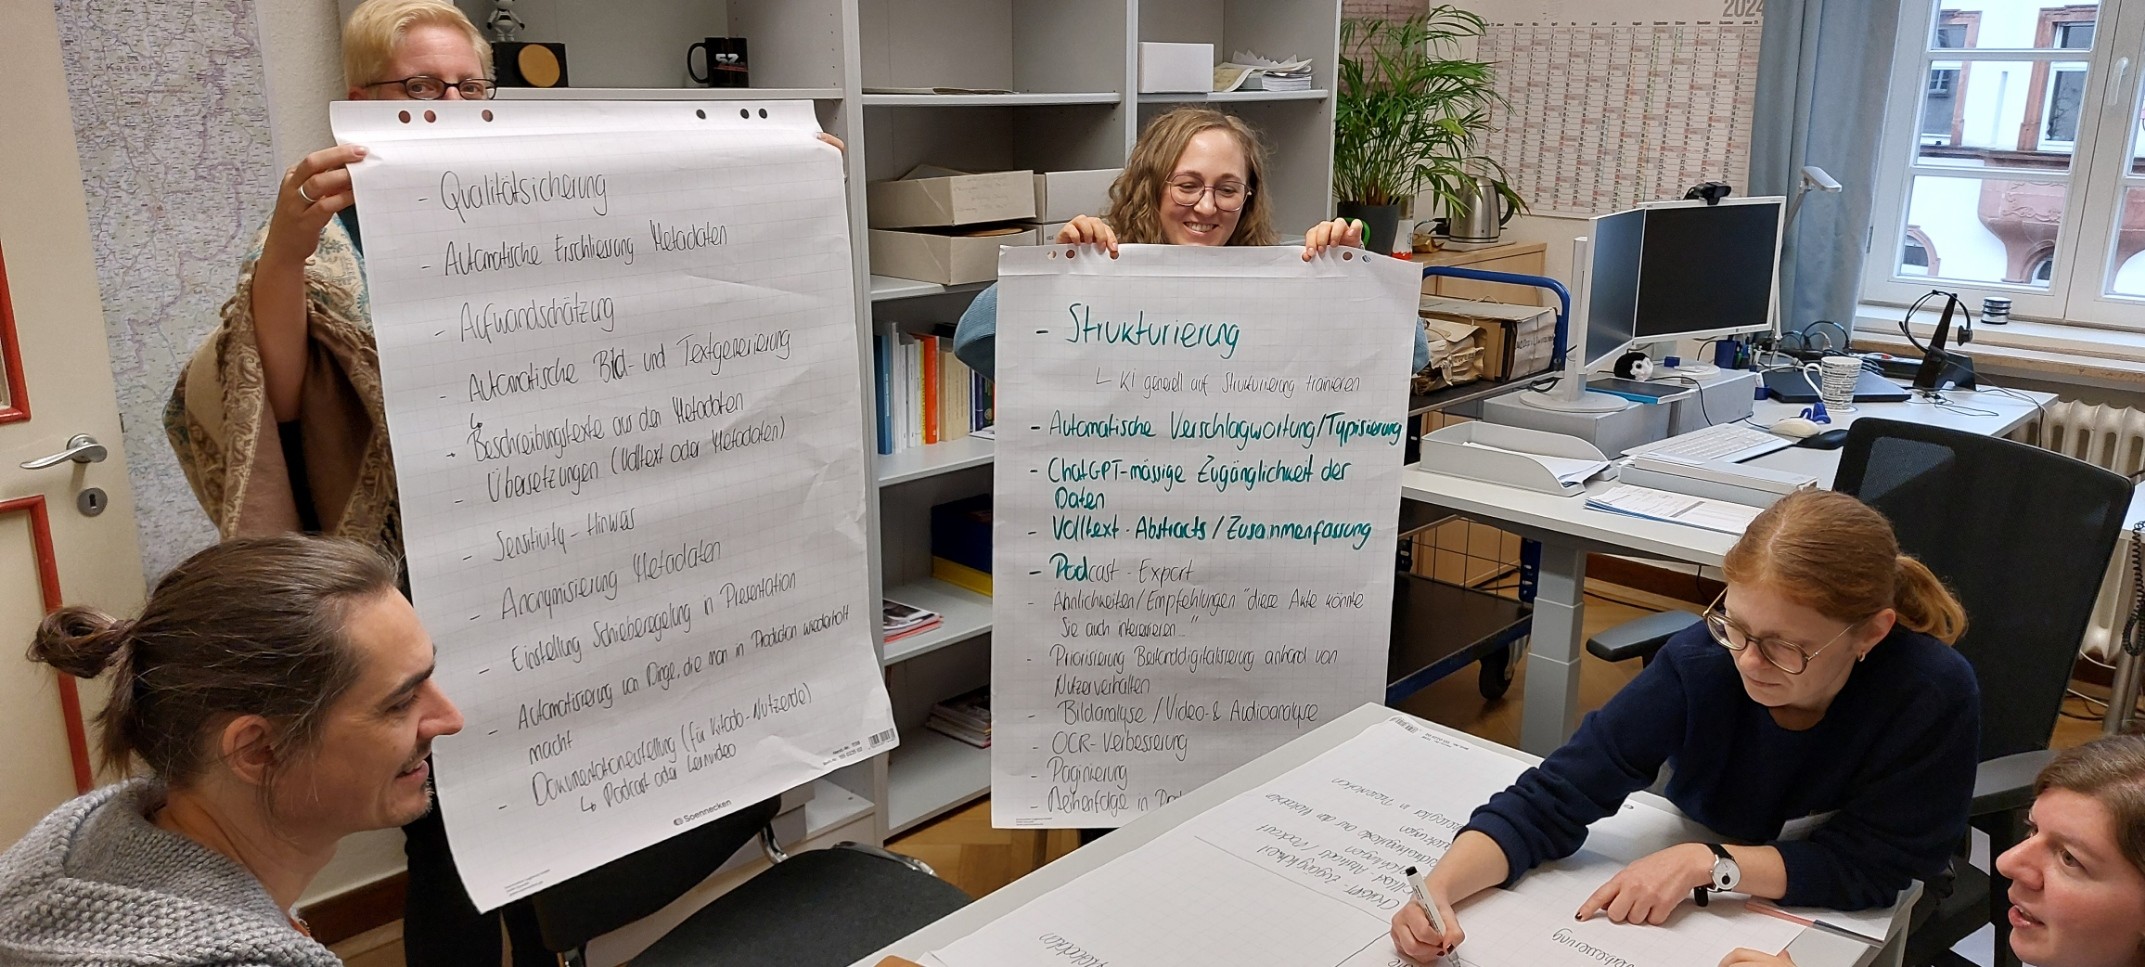 - Qualitätsicherung
- Automatische Erschliessung Metadaten
- Aufwandschätzung
- Automatische Bild- und Textgenerierung
↳ Beschreibungstexte aus den Metadaten
- Übersetzungen (Volltext oder Metadaten)
- Sensitivity-Hinweis
- Anonymisierung Metadaten
- Einstellung Schieberegelung in Presentation
- Automatisierung von Dinge, die man in Production wiederholt
macht
- Dokumentationerstellung (für Kitodo-Nutzende)
↳ Podcast oder Lernvideo
Soennecken
- Strukturierung
∟ KI generell auf Strukturierung trainieren
- Automatische Verschlagwortung/Typisierung
- ChatGPT-mässige Zugänglichkeit der
Daten
- Volltext-Abstracts/Zusammenfassung
- Podcast-Export
- Ähnlichkeiten/Empfehlungen "diese Akte könnte
Sie auch interessieren..."
- Priorisierung Bestanddigitalisierung anhand von
Nutzerverhalten
- Bildanalyse/Video- & Audioanalyse
- OCR-Verbesserung
- Paginierung
- Reihenfolge in
2024
Kassel
ChatGPT-Zugänglichkeit